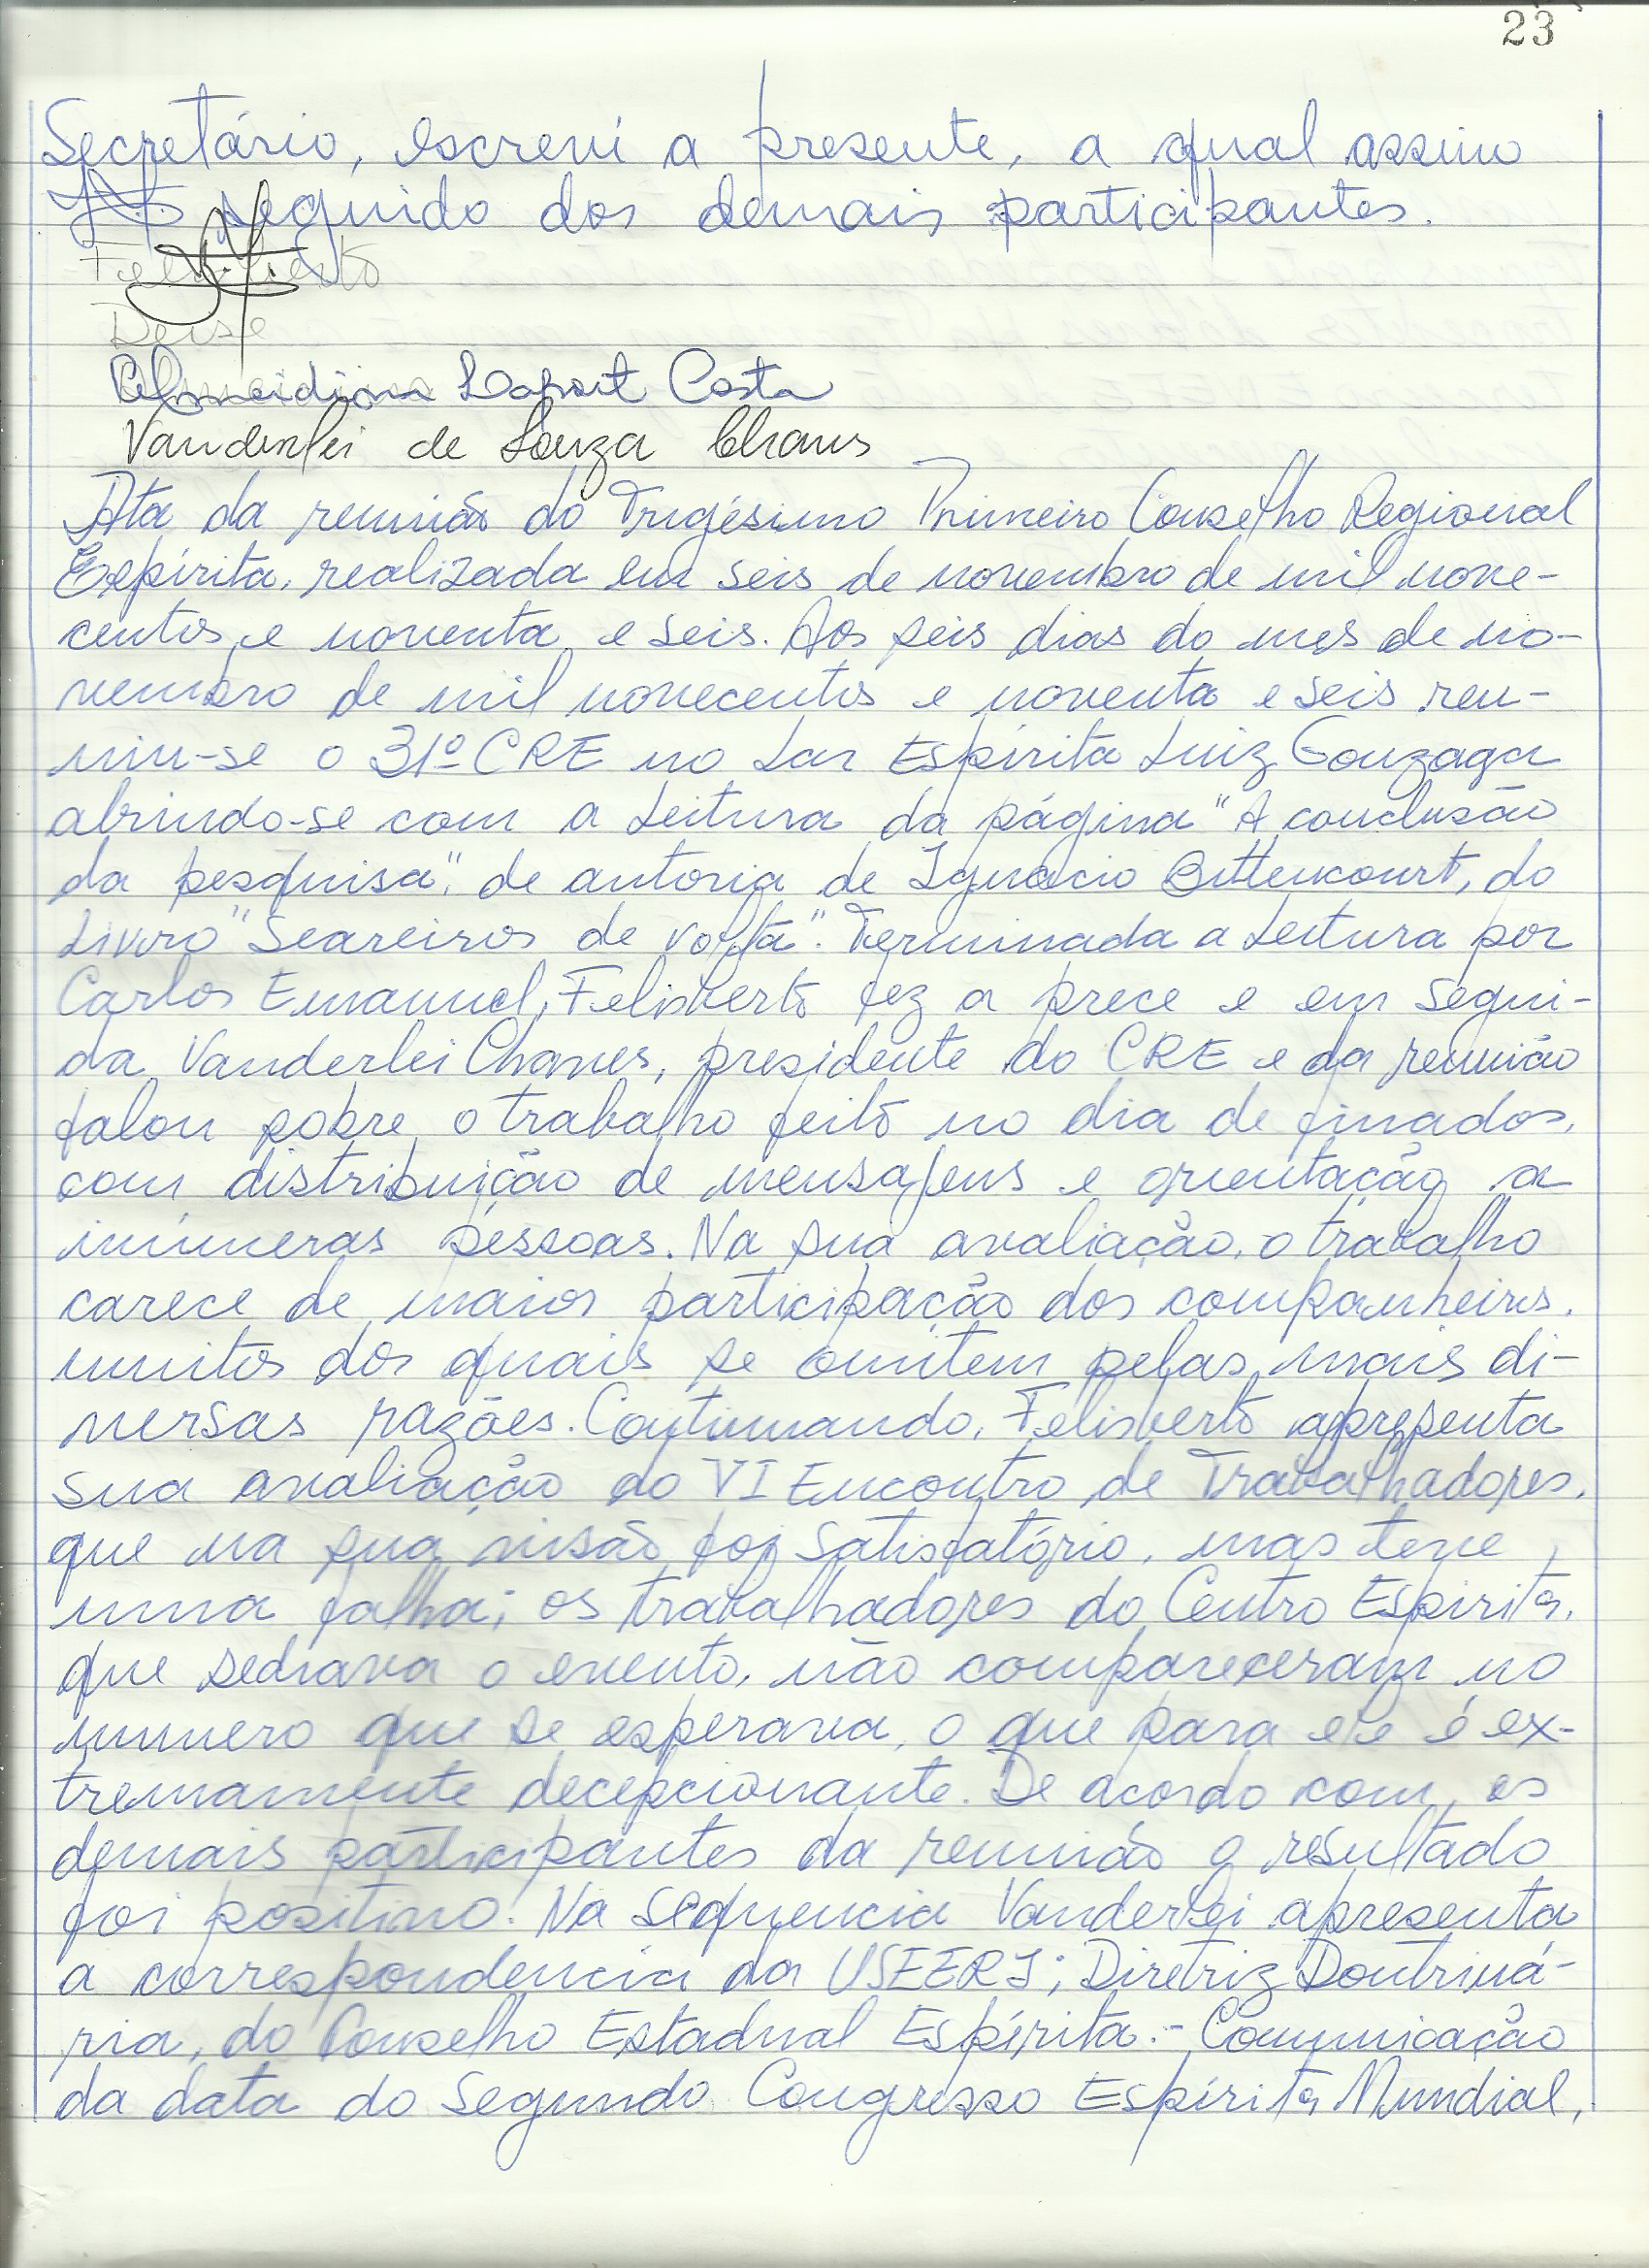 23
Secretário, escrevi a presente, a qual assino
seguido dos demais participantes.
Felisberto
Deise
Almeidina Laport Costa
Vanderlei de Souza Chaves
Ata da reunião do Trigésimo Primeiro Conselho Regional
Espírita, realizada em seis de novembro de mil nove-
centos e noventa e seis. Aos seis dias do mes de no-
vembro de mil novecentos e noventa e seis reu-
niu-se o 31º CRE no Lar Espírita Luiz Gonzaga
abrindo-se com a leitura da página "A conclusão
da pesquisa", de autoria de Ignacio Bittencourt, do
livro "Seareiros de volta". Terminada a leitura por
Carlos Emanuel, Felisberto fez a prece e em segui-
da Vanderlei Chaves, presidente do CRE e da reunião
falou sobre o trabalho feito no dia de finados,
com distribuição de mensagens e orientação a
inúmeras pessoas. Na sua avaliação, o trabalho
carece de maior participação dos companheiros,
muitos dos quais se omitem pelas mais di-
versas razões. Continuando, Felisberto apresenta
sua avaliação do VI Encontro de Trabalhadores,
que na sua visão foi satisfatório, mas teve
uma falha; os trabalhadores do Centro Espírita,
que sediava o evento, não compareceram no
numero que se esperava, o que para ele é ex-
tremamente decepcionante. De acordo com os
demais participantes da reunião o resultado
foi positivo. Na sequencia Vanderlei apresenta
a correspondencia da USEERJ; Diretriz Doutriná-
ria, do Conselho Estadual Espírita. - Comunicação
da data do Segundo Congresso Espírita Mundial,